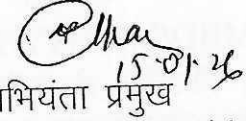 15.01.26
भियंता प्रमुख